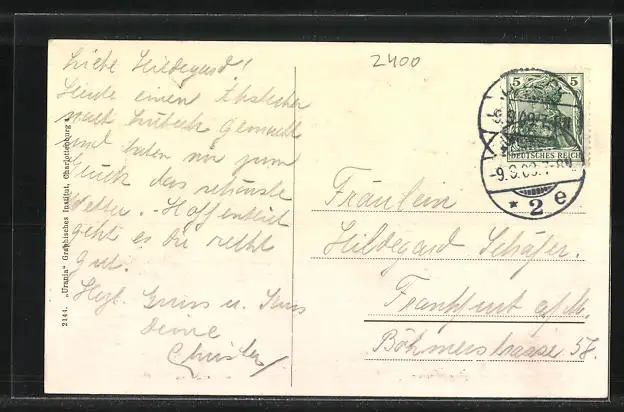 2400
Liebe Hildegard!
Heute einen Abstecher
nach Lübeck gemacht
und haben wir zum
Glück das schönste
Wetter. Hoffentlich
geht es Dir recht
gut.
Herzl. Gruss u. Kuss
Deine
5 5
DEUTSCHES REICH
-9.9.09.7-8N.
* 2 e
Fräulein
Hildegard Schäfer.
Frankfurt a/M.
Böhmerstrasse 58.
2144. „Urania" Graphisches Institut, Charlottenburg 4.